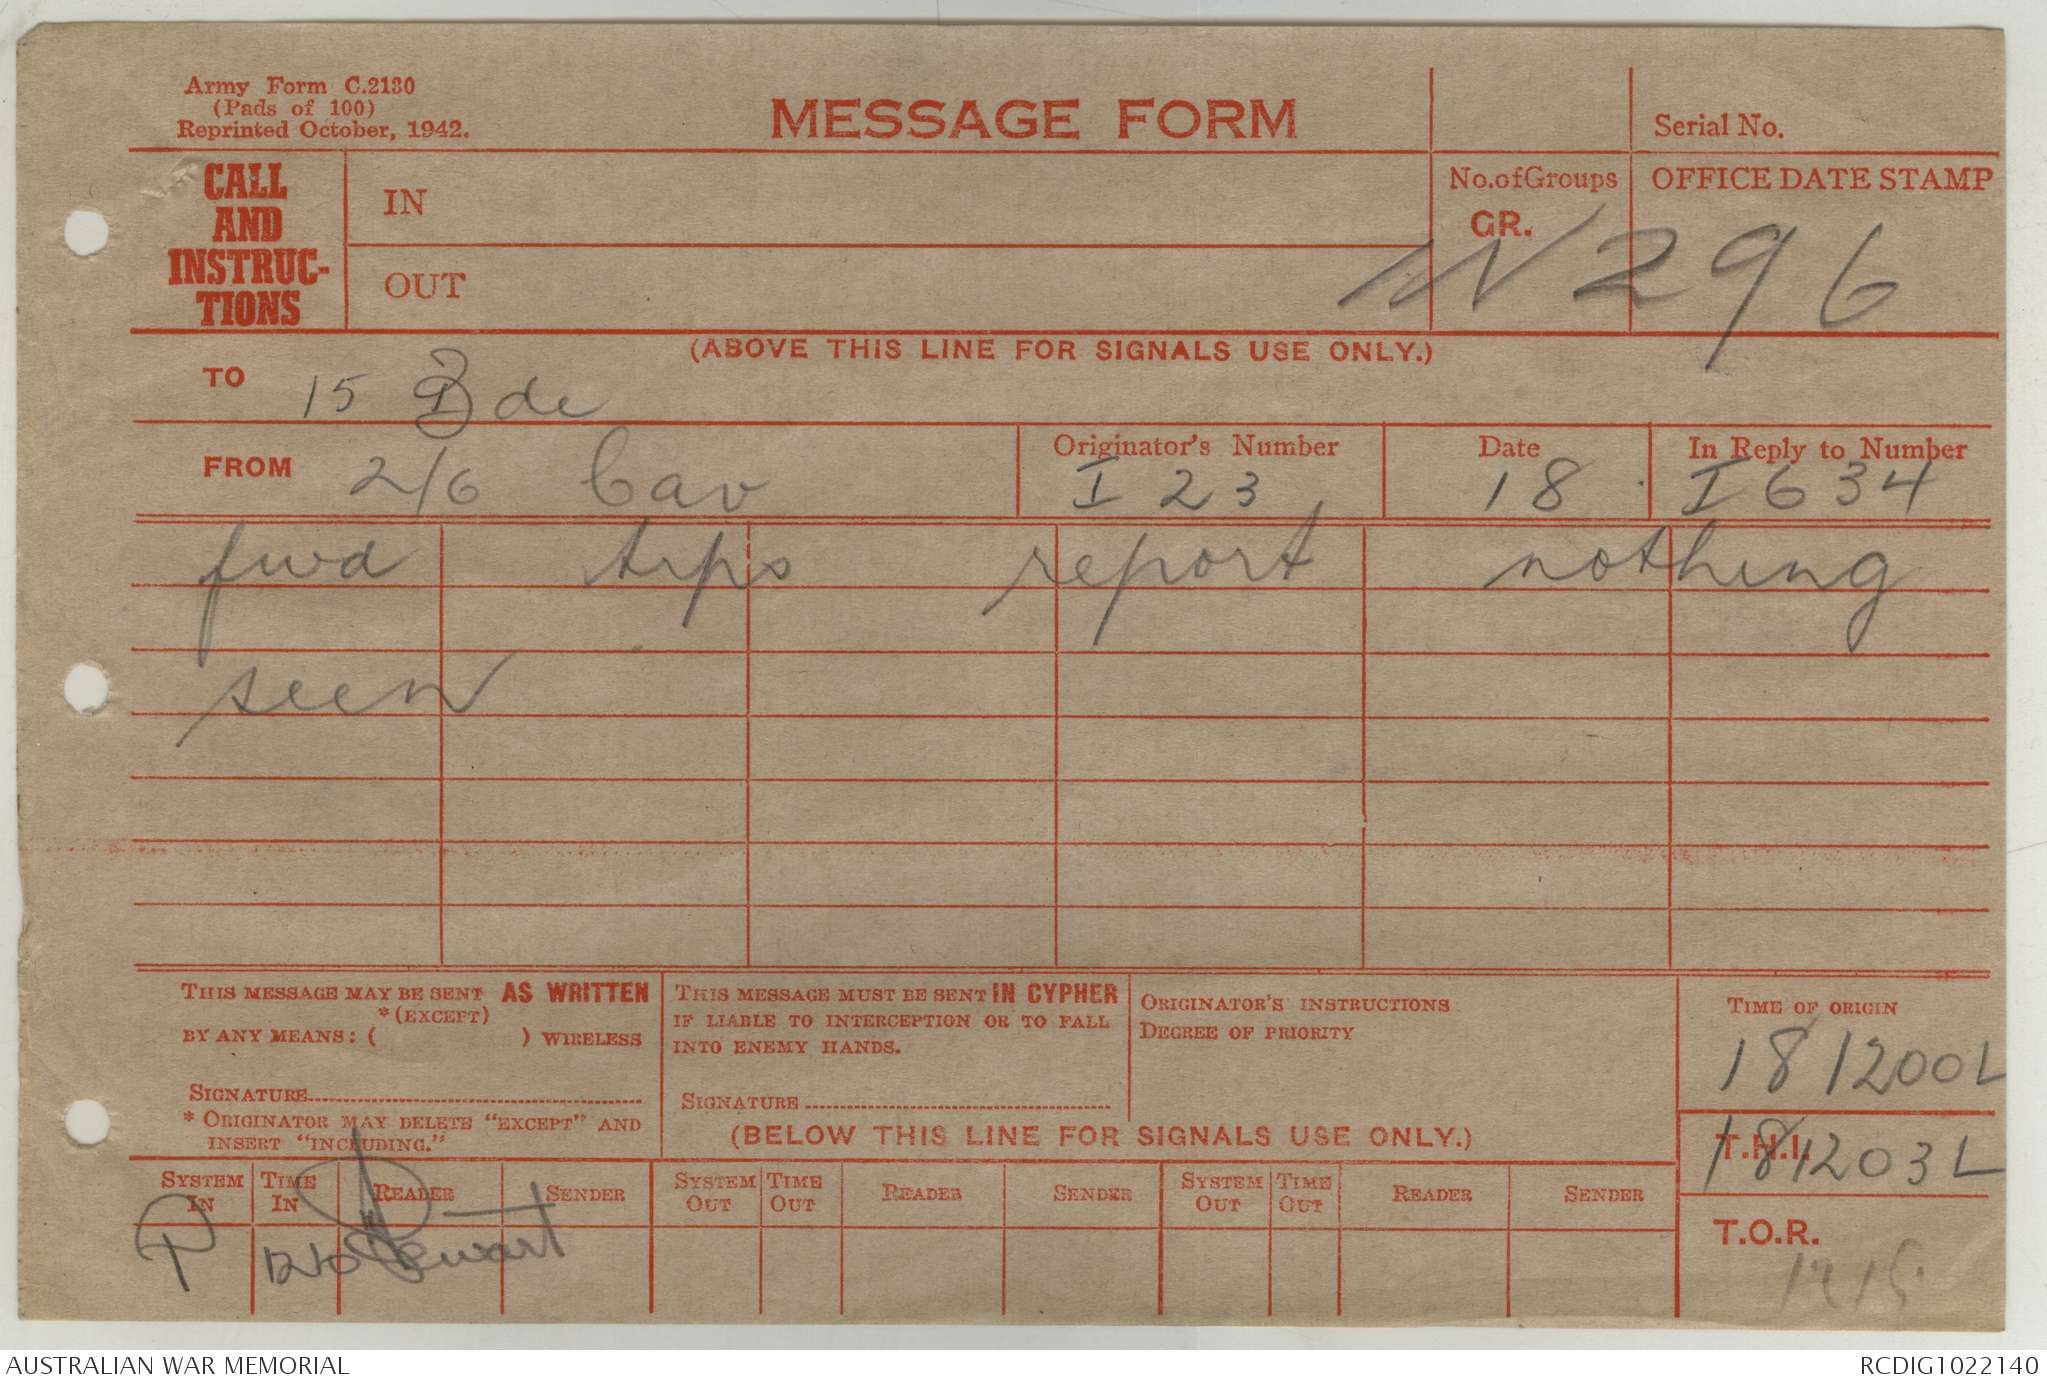 Army Form C.2130
(Pads of 100)
Reprinted October, 1942.
MESSAGE FORM
Serial No.
CALL
AND
INSTRUC-
TIONS
IN
OUT
No. of Groups
GR.
OFFICE DATE STAMP
W 296
(ABOVE THIS LINE FOR SIGNALS USE ONLY.)
TO 15 Bde
FROM 2/6 Cav
Originator's Number I 23
Date 18
In Reply to Number I 634
fwd trps report nothing
seen
THIS MESSAGE MAY BE SENT AS WRITTEN
*(EXCEPT)
BY ANY MEANS: ( ) WIRELESS
SIGNATURE
* ORIGINATOR MAY DELETE "EXCEPT" AND
INSERT "INCLUDING."
THIS MESSAGE MUST BE SENT IN CYPHER
IF LIABLE TO INTERCEPTION OR TO FALL
INTO ENEMY HANDS.
SIGNATURE
ORIGINATOR'S INSTRUCTIONS
DEGREE OF PRIORITY
TIME OF ORIGIN
181200L
(BELOW THIS LINE FOR SIGNALS USE ONLY.)
T.H.I.
181203L
SYSTEM IN TIME IN READER SENDER SYSTEM OUT TIME OUT READER SENDER SYSTEM OUT TIME OUT READER SENDER
T.O.R.
P 1210 Stewart
AUSTRALIAN WAR MEMORIAL
RCDIG1022140